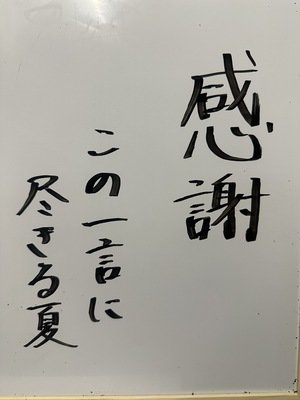 感謝
この一言に
尽きる夏